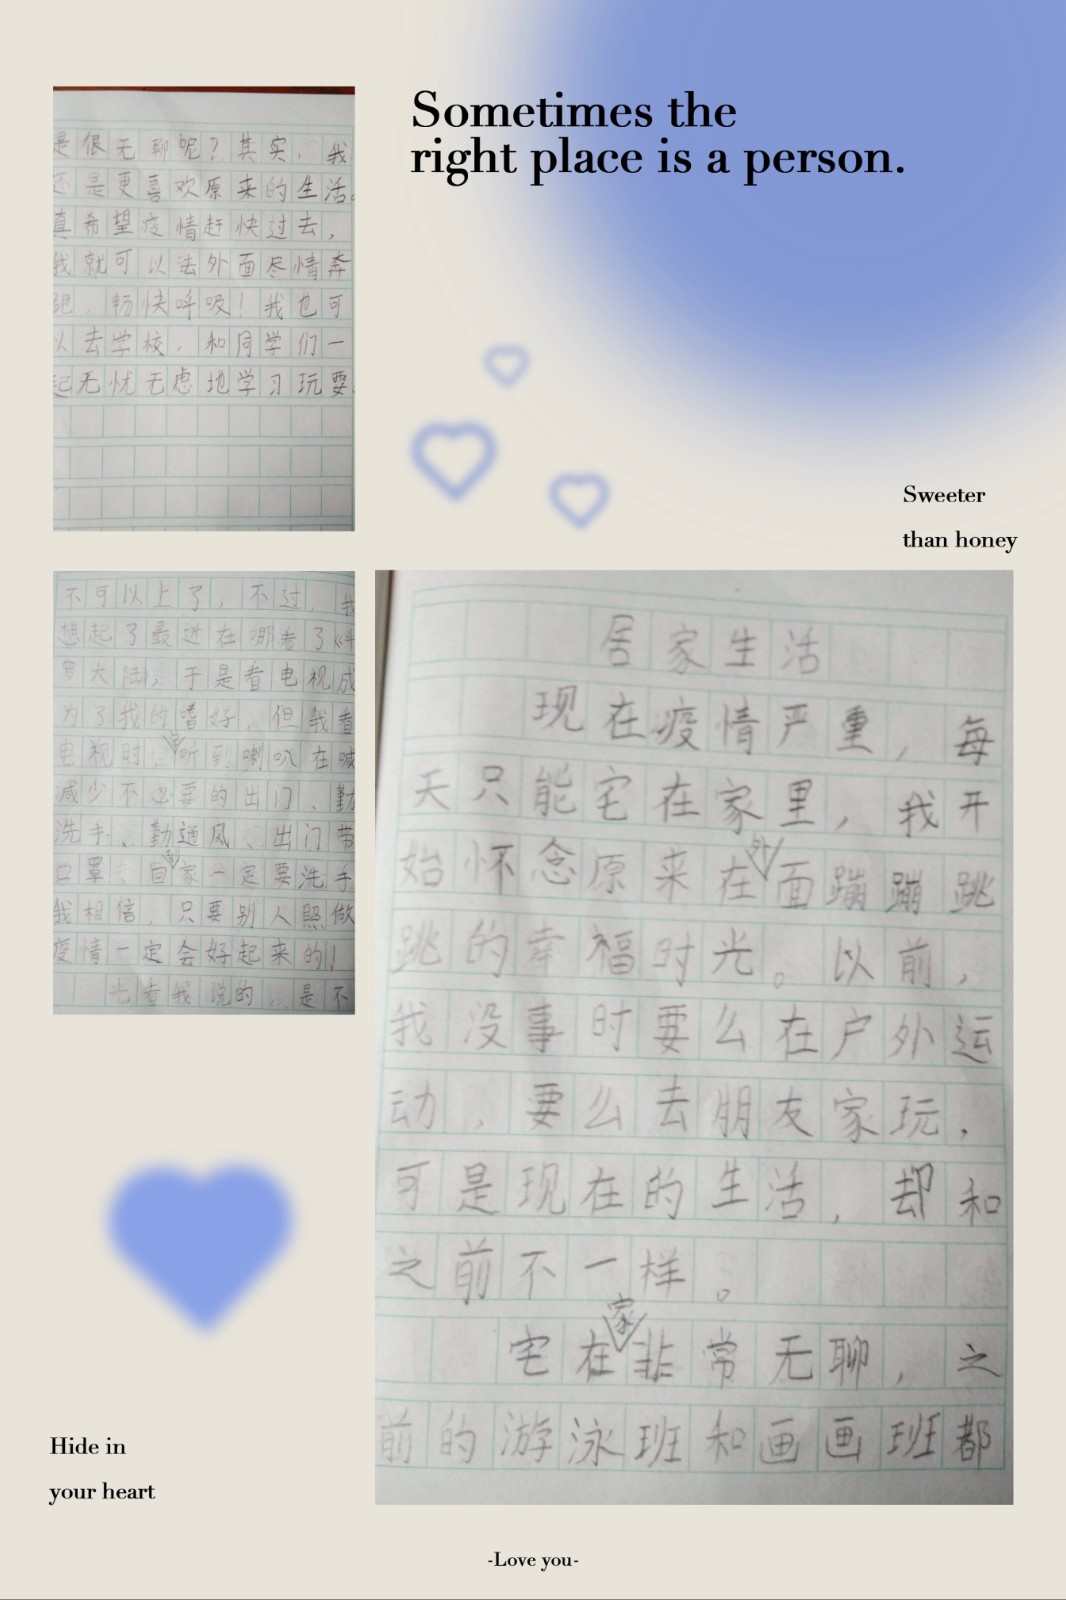 Sometimes the
right place is a person.
是很无聊呢？其实，我
还是更喜欢原来的生活。
真希望疫情赶快过去，
我就可以去外面尽情奔
跑，畅快呼吸！我也可
以去学校，和同学们一
起无忧无虑地学习玩耍。
Sweeter
than honey
不可以上了，不过，我
想起了最近在哪看了《斗
罗大陆，于是看电视成
为了我的嗜好，但我看
电视时，听到喇叭在喊
减少不必要的出门、勤
洗手、勤通风、出门带
口罩、回家一定要洗手
我相信，只要别人照做
疫情一定会好起来的！
光看我说的，是不
居家生活
现在疫情严重，每
天只能宅在家里，我开
始怀念原来在外面蹦蹦跳
跳的幸福时光。以前，
我没事时要么在户外运
动，要么去朋友家玩，
可是现在的生活，却和
之前不一样。
宅在家非常无聊，之
前的游泳班和画画班都
Hide in
your heart
-Love you-